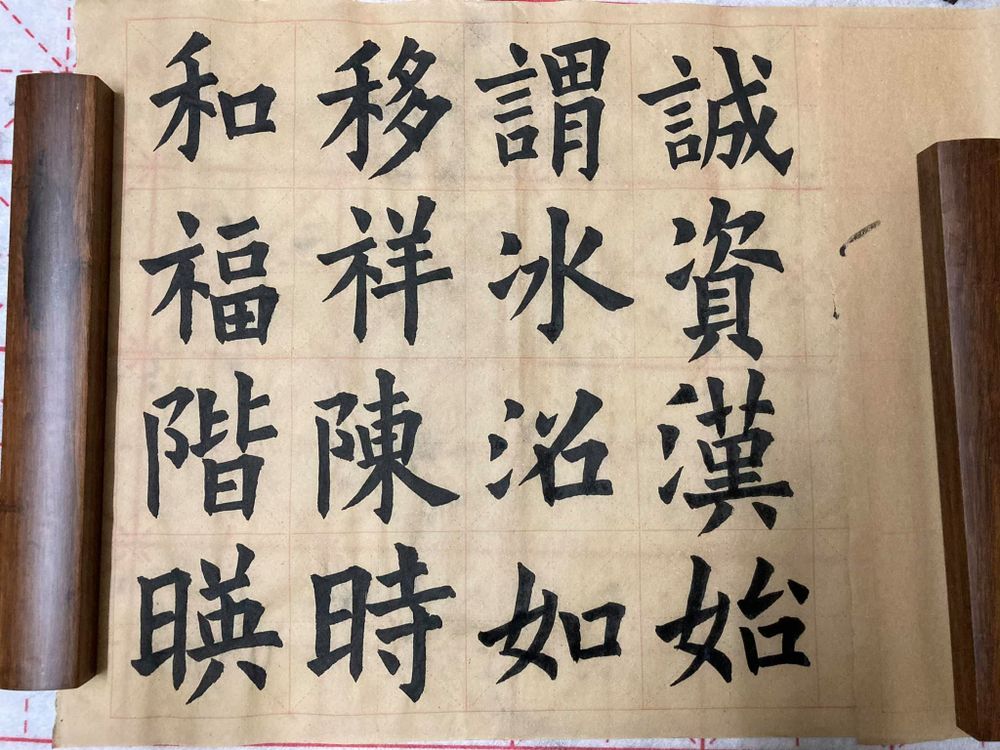 誠資漢始
謂冰沼如
移祥陳時
和福階暎